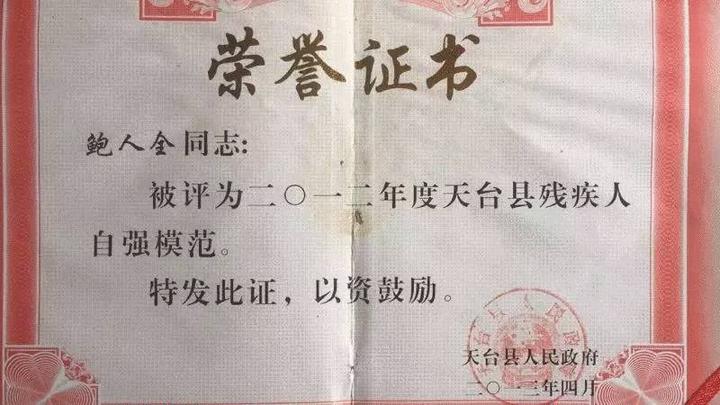 荣誉证书
鲍人全同志:
被评为二〇一二年度天台县残疾人
自强模范。
特发此证，以资鼓励。
天台县人民政府
二〇一三年四月